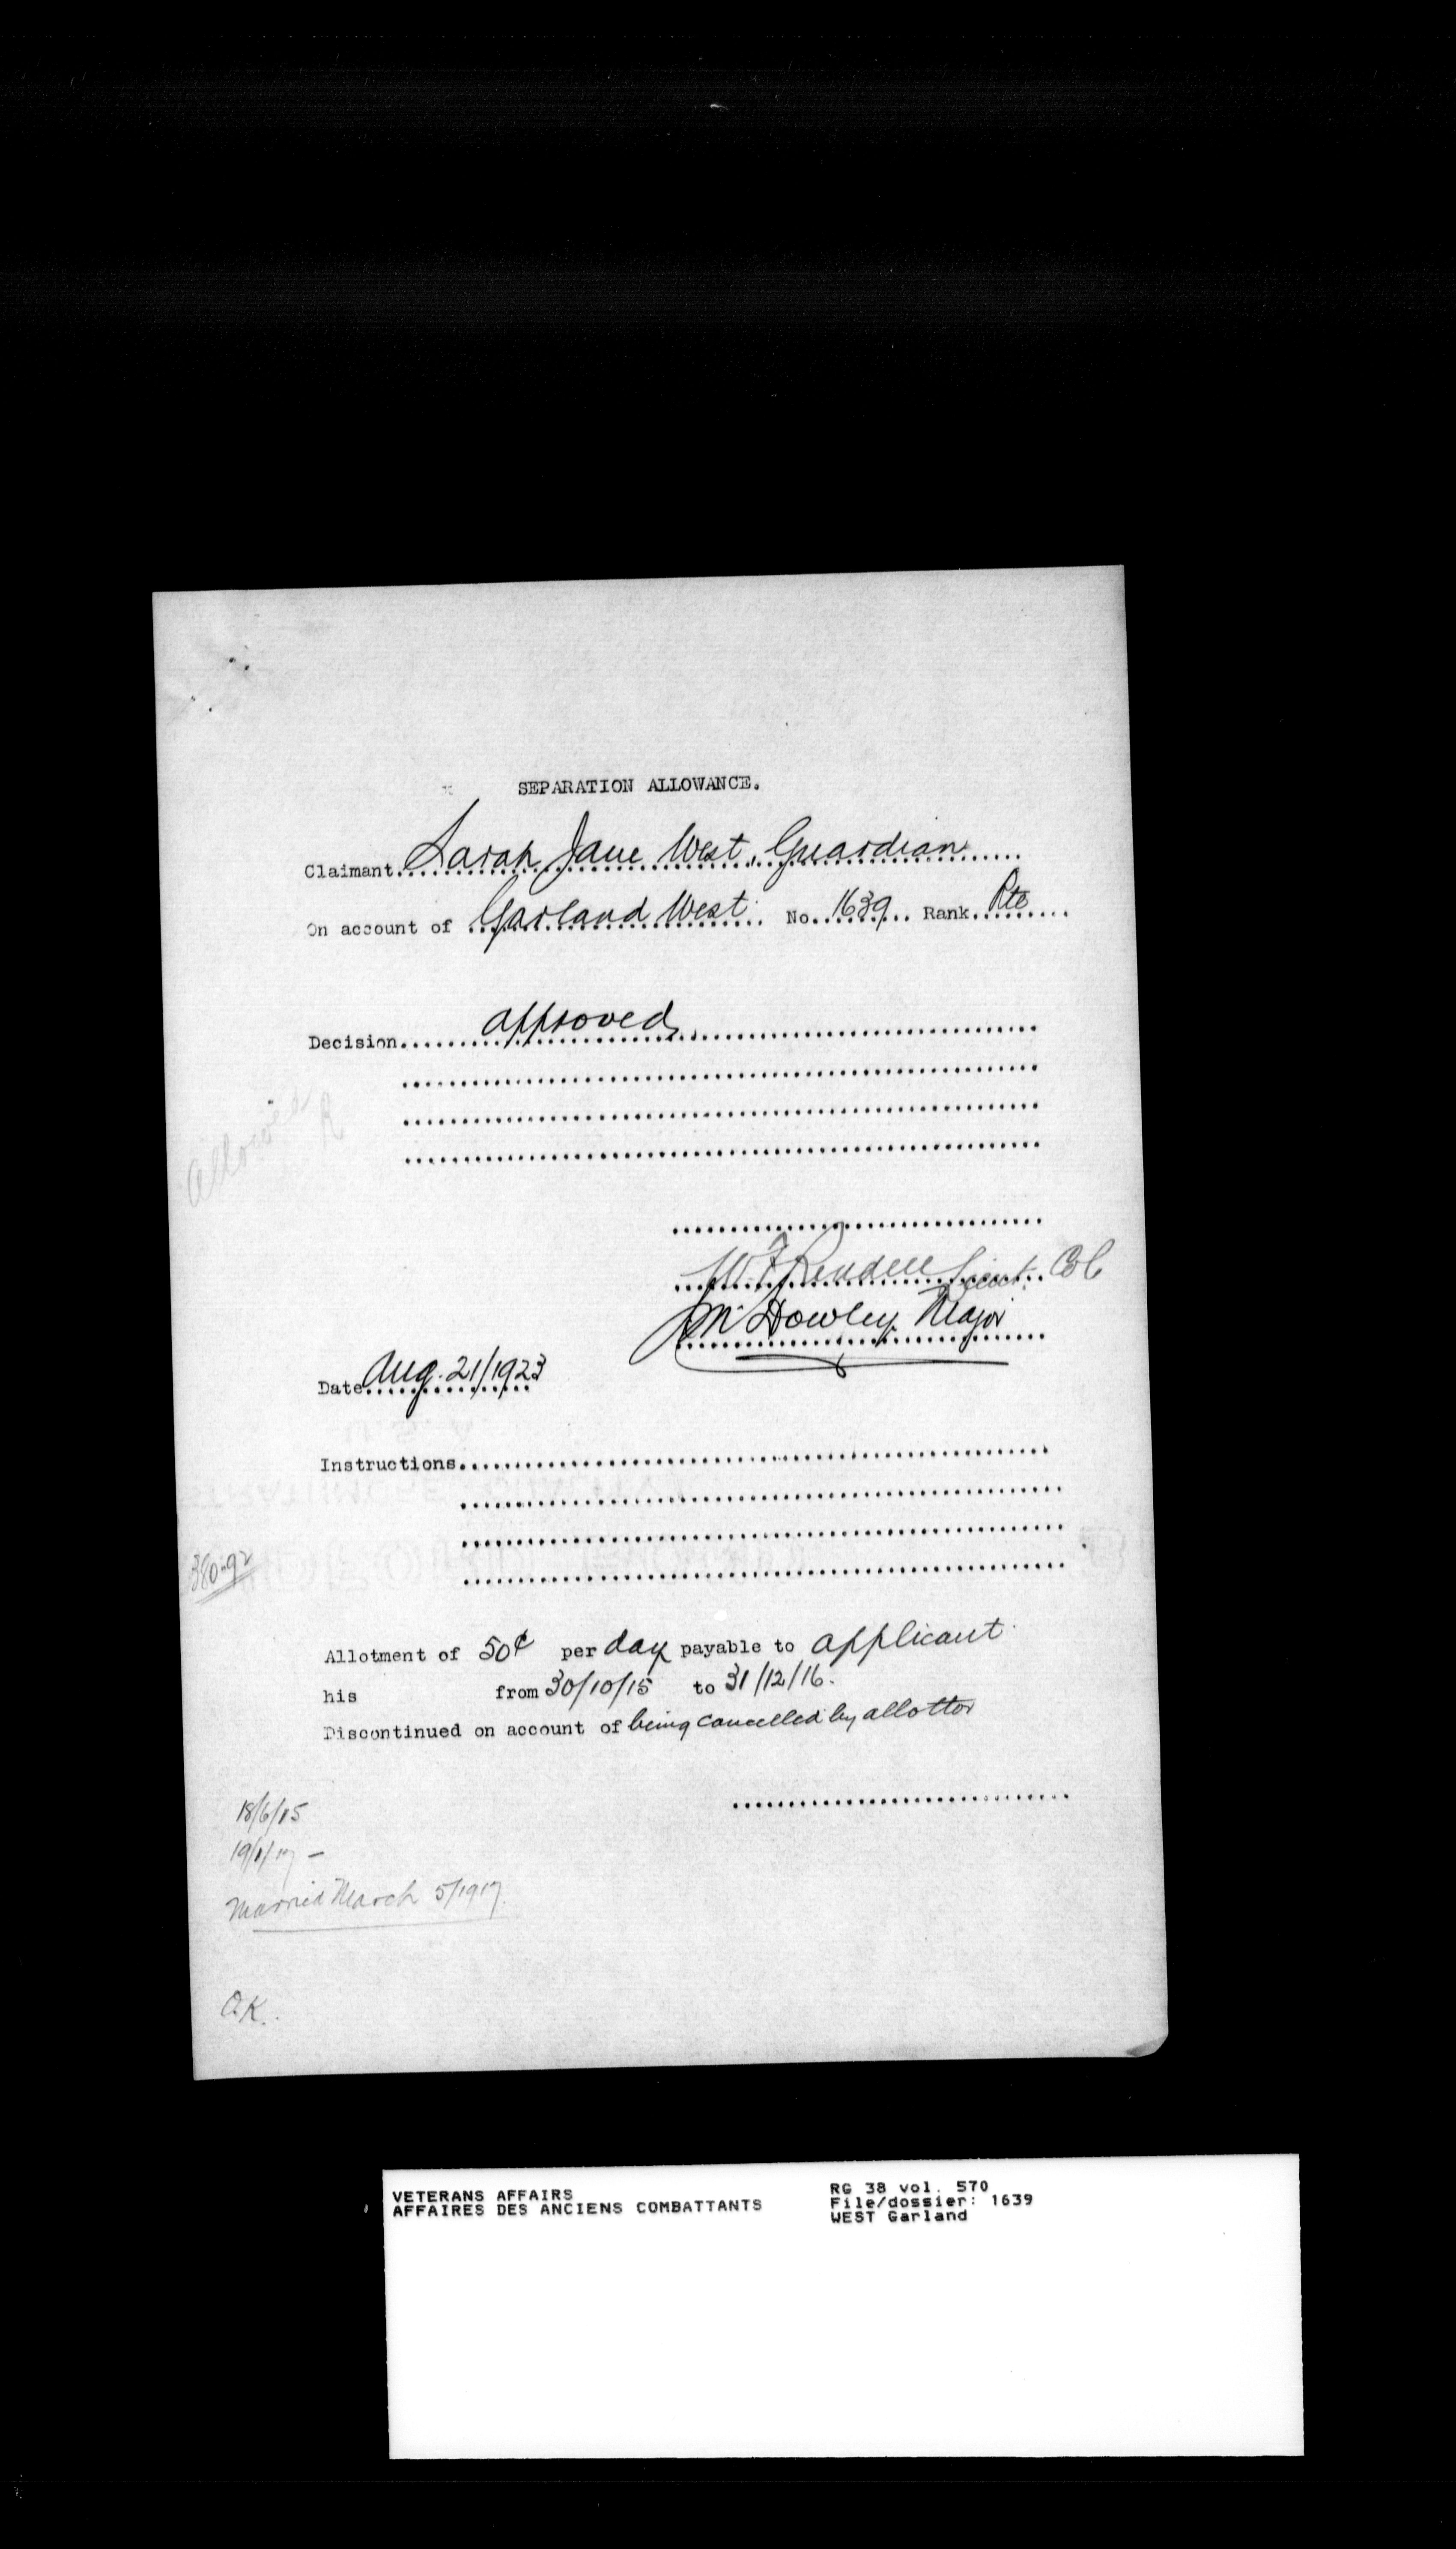 SEPARATION ALLOWANCE.
Claimant Sarah Jane West, Guardian
On account of Garland West No. 1639 Rank Pte
Decision approved
Allowed
R
W F Rendell Lieut. Col
M Dowley Major
Date Aug. 21/1923
Instructions
380.92
Allotment of 50¢ per day payable to applicant
his from 30/10/15 to 31/12/16.
Discontinued on account of being cancelled by allottor
18/6/15
19/1/17 –
Married March 5/1917.
O.K.
VETERANS AFFAIRS
AFFAIRES DES ANCIENS COMBATTANTS
RG 38 vol. 570
File/dossier: 1639
WEST Garland